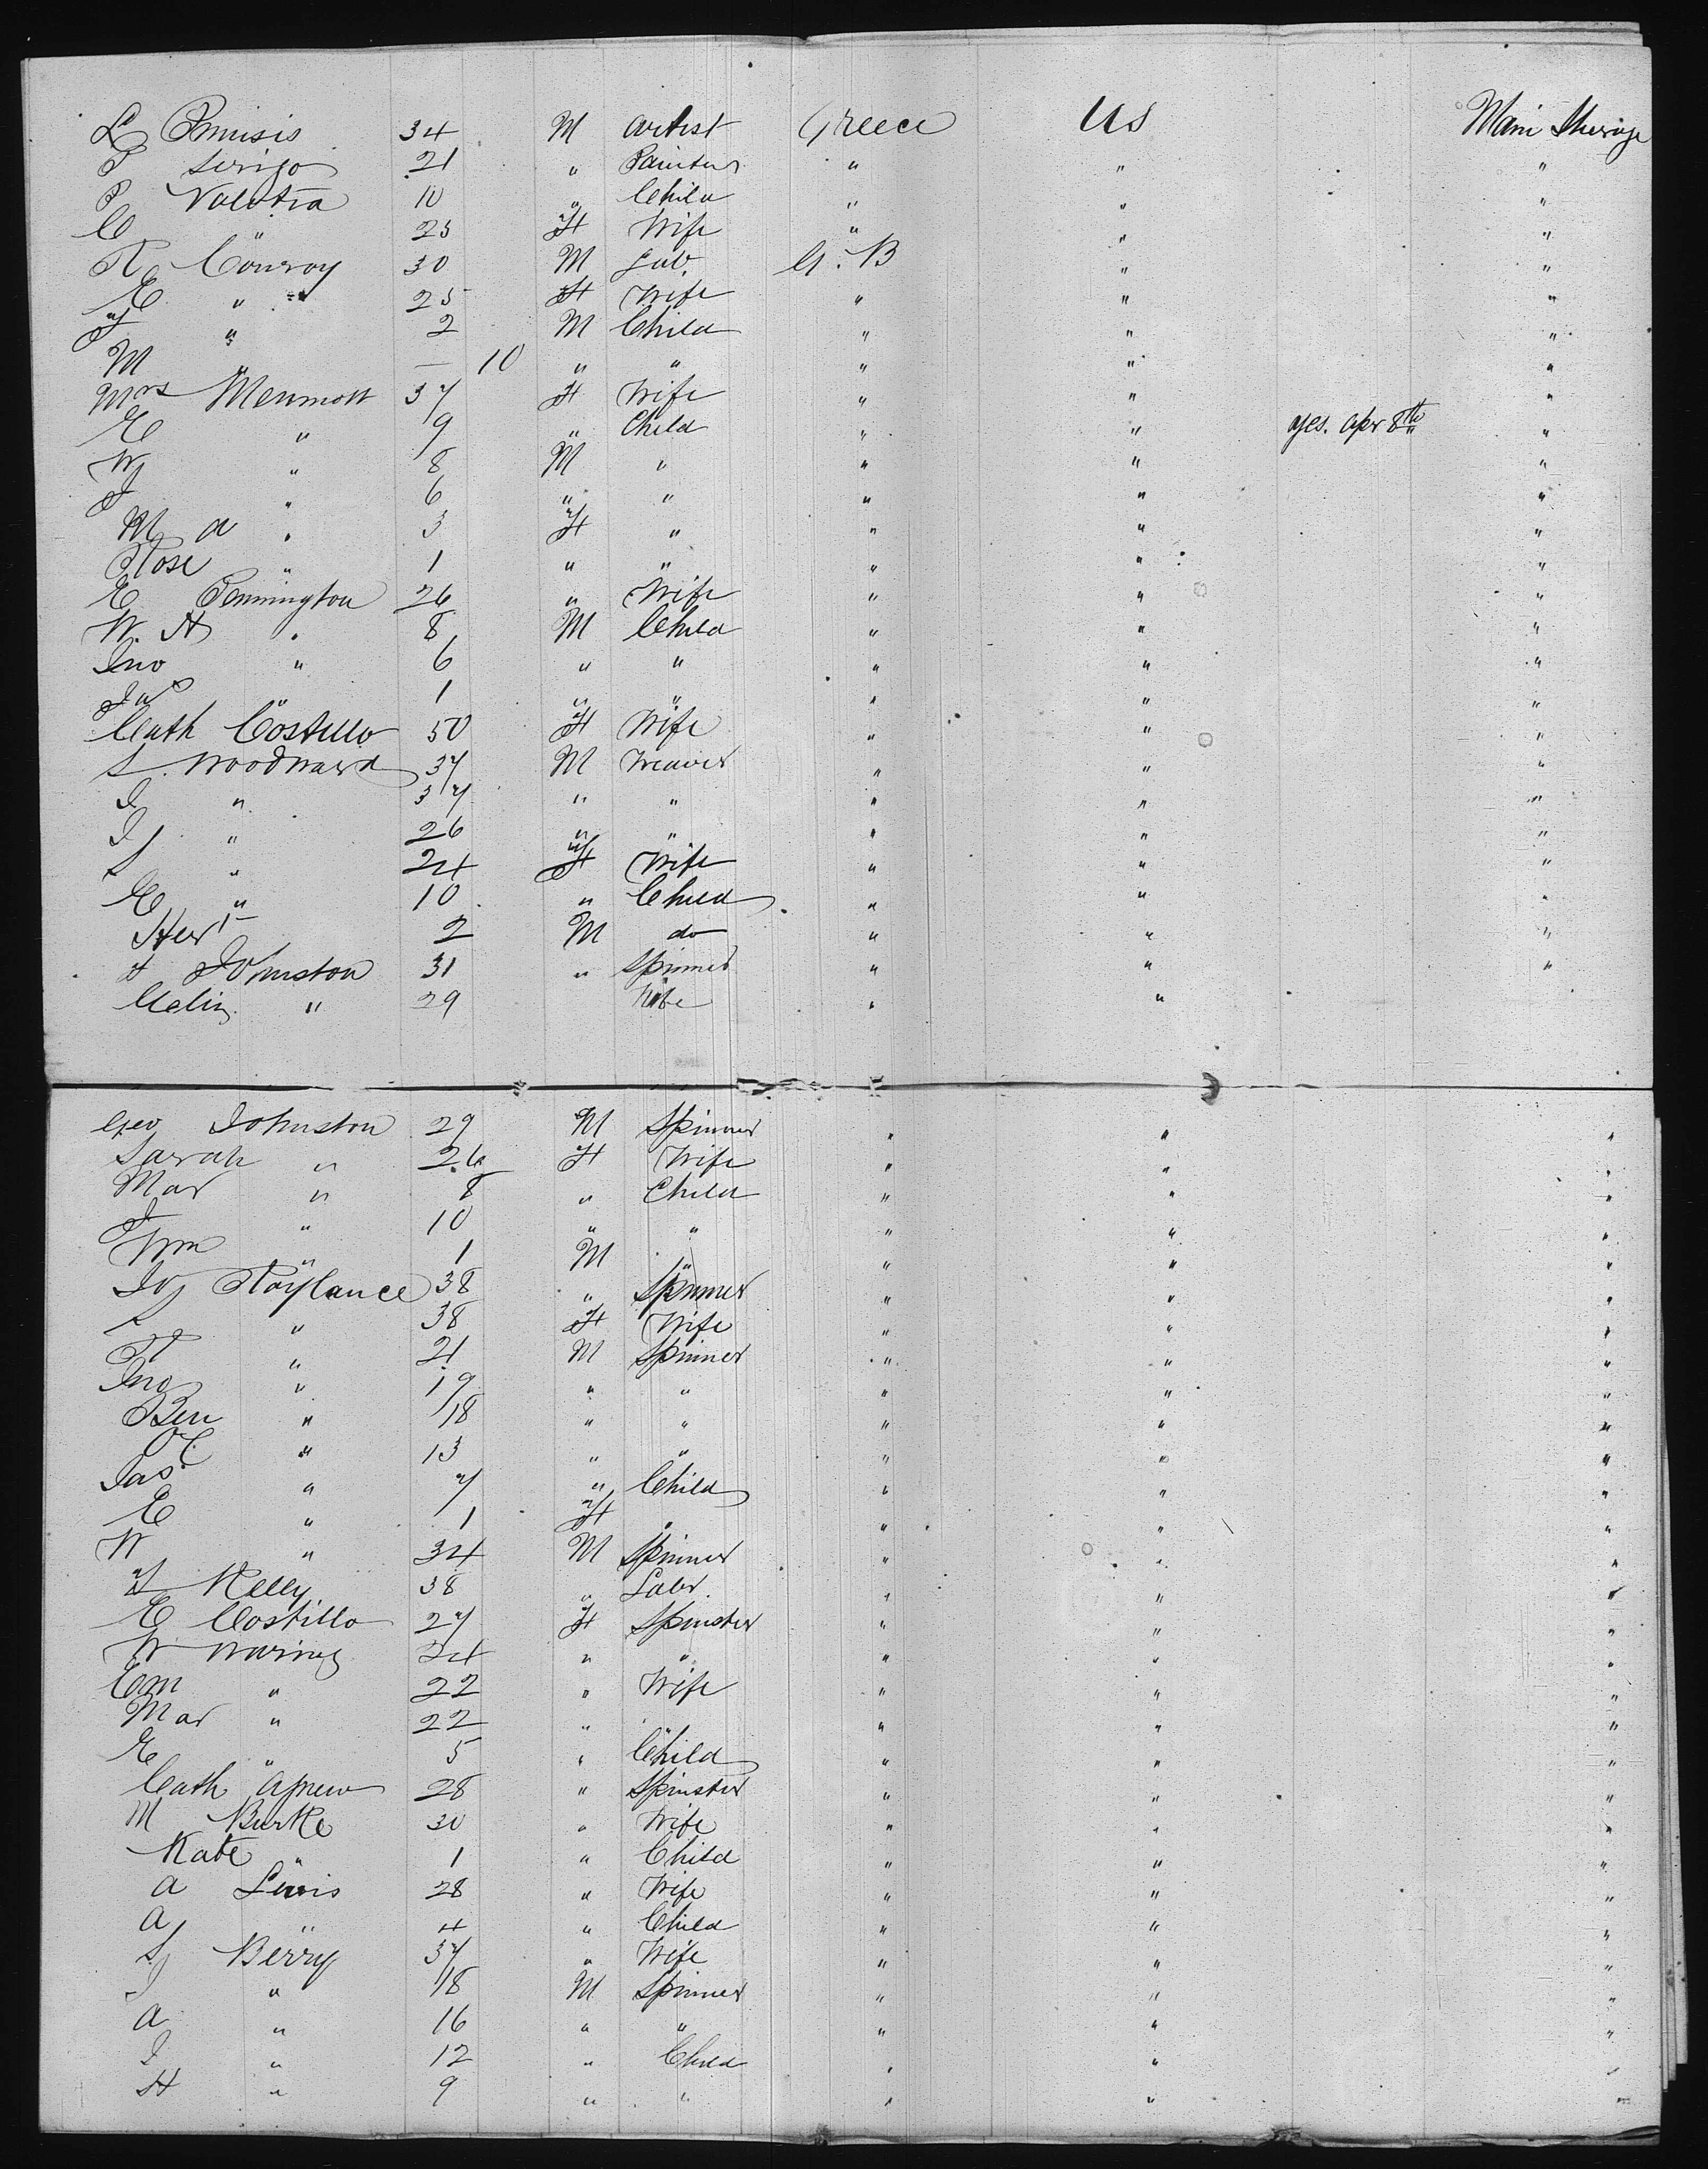 L Pmusis 34 M Artist Greece US Main Steerage
P Serigo 21 " Painter " " "
P Valutra 10 " Child " " "
C " 25 F Wife " " "
R Conroy 30 M Lab. G. B " "
E " 25 F Wife " " "
T " 2 M Child " " "
M " — 10 " " " " "
Mrs Menmott 37 F Wife " " "
E " 9 " Child " " yes. Apr 8th "
W " 8 M " " " "
J " 6 " " " " "
M A " 3 F " " " "
Rose " 1 " " " " "
E Pennington 26 " Wife " " "
W. H " 8 M Child " " "
Jno " 6 " " " " "
Jas " 1 " " " " "
Cath Costillo 50 F Wife " " "
S Woodward 37 M Weaver " " "
J " 37 " " " " "
J " 26 " " " " "
S " 24 F Wife " " "
E " 10 " Child " " "
Hert 2 M do " " "
F Johnston 31 " Spinner " " "
Celin " 29 Wife " "
Geo Johnston 29 M Spinner " " "
Sarah " 26 F Wife " " "
Mar " 8 " Child " " "
J " 10 " " " " "
Wm " 1 M " " " "
Jo Roylance 38 " Spinner " " "
S " 38 F Wife " " "
T " 21 M Spinner " " "
Jno " 19 " " " " "
Ben " 18 " " " " "
" 13 " " " " "
Jas. " 7 " Child " " "
E " 1 F " " " "
W " 34 M Spinner " " "
T Kelly 38 " Labr. " " "
E Costillo 27 F Spinster " " "
W Waring 24 " " " " "
Em " 22 " Wife " " "
Mar " 22 " " " " "
E " 5 " Child " " "
Cath Agnew 28 " Spinster " " "
M Burke 30 " Wife " " "
Kate " 1 " Child " " "
A Lewis 28 " Wife " " "
A " 4 " Child " " "
S Berry 37 " Wife " " "
J " 18 M Spinner " " "
A " 16 " " " " "
J " 12 " Child " " "
H " 9 " " " " "